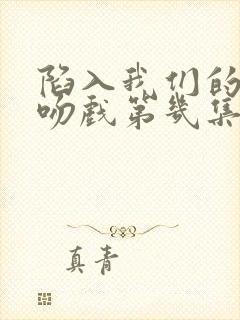 陷入我们的
吻戏第几集
真青